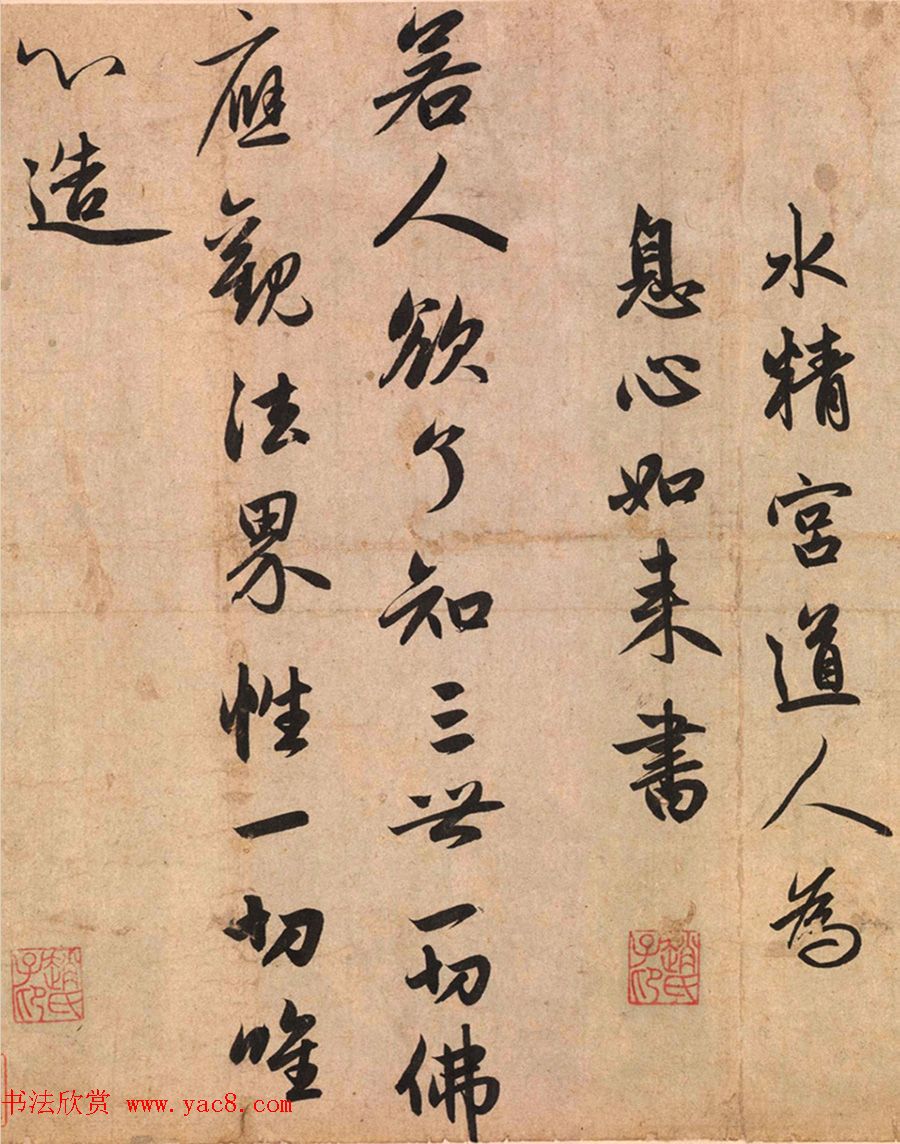 水精宮道人為
息心如来書
若人欲了知三世一切佛
應觀法界性一切唯
心造
趙氏子印
趙氏子印
书法欣赏 www.yac8.com